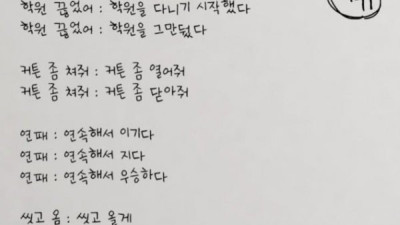 학원 끊었어 : 학원을 다니기 시작했다
학원 끊었어 : 학원을 그만뒀다
커튼 좀 쳐줘 : 커튼 좀 열어줘
커튼 좀 쳐줘 : 커튼 좀 닫아줘
연패 : 연속해서 이기다
연패 : 연속해서 지다
연패 : 연속해서 우승하다
씻고 옴 : 씻고 올게